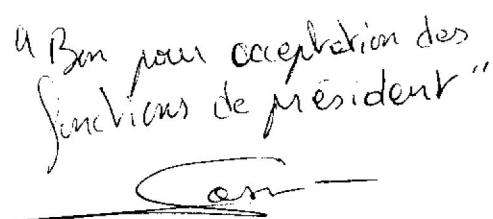 "Bon pour acceptation des
fonctions de président"